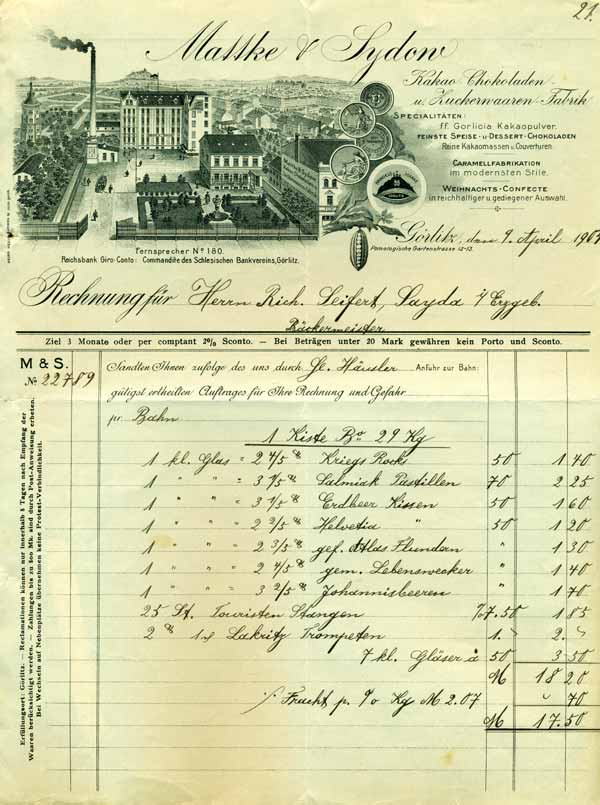 21.
Mattke & Sydow
Kakao Chokoladen-
u. Zuckerwaaren-Fabrik
SPECIALITÄTEN:
ff. Gorlicia Kakaopulver.
FEINSTE SPEISE- u. DESSERT-CHOKOLADEN
Reine Kakaomassen u. Couverturen.
CARAMELLFABRIKATION
im modernsten Stile.
WEIHNACHTS-CONFECTE
in reichhaltiger u. gediegener Auswahl.
Fernsprecher Nº 180.
Reichsbank Giro-Conto: Commandite des Schlesischen Bankvereins, Görlitz.
Görlitz, den 9. April 190
Pomologische Gartenstrasse 12-13.
Rechnung für Herrn Rich. Seifert, Sayda i/Erzgeb.
Bäckermeister
Ziel 3 Monate oder per comptant 2% Sconto. — Bei Beträgen unter 20 Mark gewähren kein Porto und Sconto.
M & S.
№ 22789
Sandten Ihnen zufolge des uns durch Hr. Häusler Anfuhr zur Bahn:
gütigst ertheilten Auftrages für Ihre Rechnung und Gefahr
pr. Bahn
1 Kiste Bo 29 Kg
1 kl. Glas = 2 4/5 Kriegs Rocks 50 1 40
1 " " = 3 1/5 Salmiak Pastillen 70 2 25
1 " " = 3 1/5 Erdbeer Kissen 50 1 60
1 " " = 2 2/5 Helvetia " 50 1 20
1 " " = 2 3/5 gef. Atlas Flundern " 1 30
1 " " = 2 4/5 gem. Lebenswecker " 1 40
1 " " = 3 2/5 Johannisbeeren " 1 70
25 St. Touristen Stangen %7.50 1 85
2 Lakritz Trompeten 1. " 2. "
7 kl. Gläser à 50 3 50
M 18 20
./. Fracht p. % Kg M 2.07 " 70
M 17.50
Erfüllungsort: Görlitz. — Reclamationen können nur innerhalb 8 Tagen nach Empfang der
Waaren berücksichtigt werden. — Zahlungen bis zu 800 Mk. sind durch Post-Anweisung erbeten.
Bei Wechseln auf Nebenplätze übernehmen keine Protest-Verbindlichkeit.